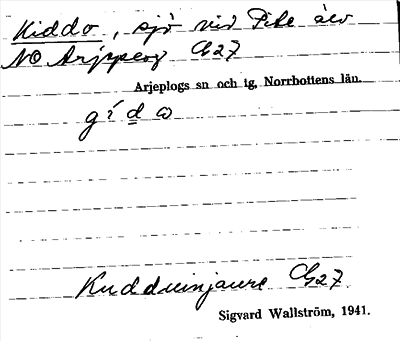 Kiddo, sjö vid Pite älv
NO Arjeplog Cb27
Arjeplogs sn och tg, Norrbottens län.
gídω
Kudduinjaure Cb27
Sigvard Wallström, 1941.